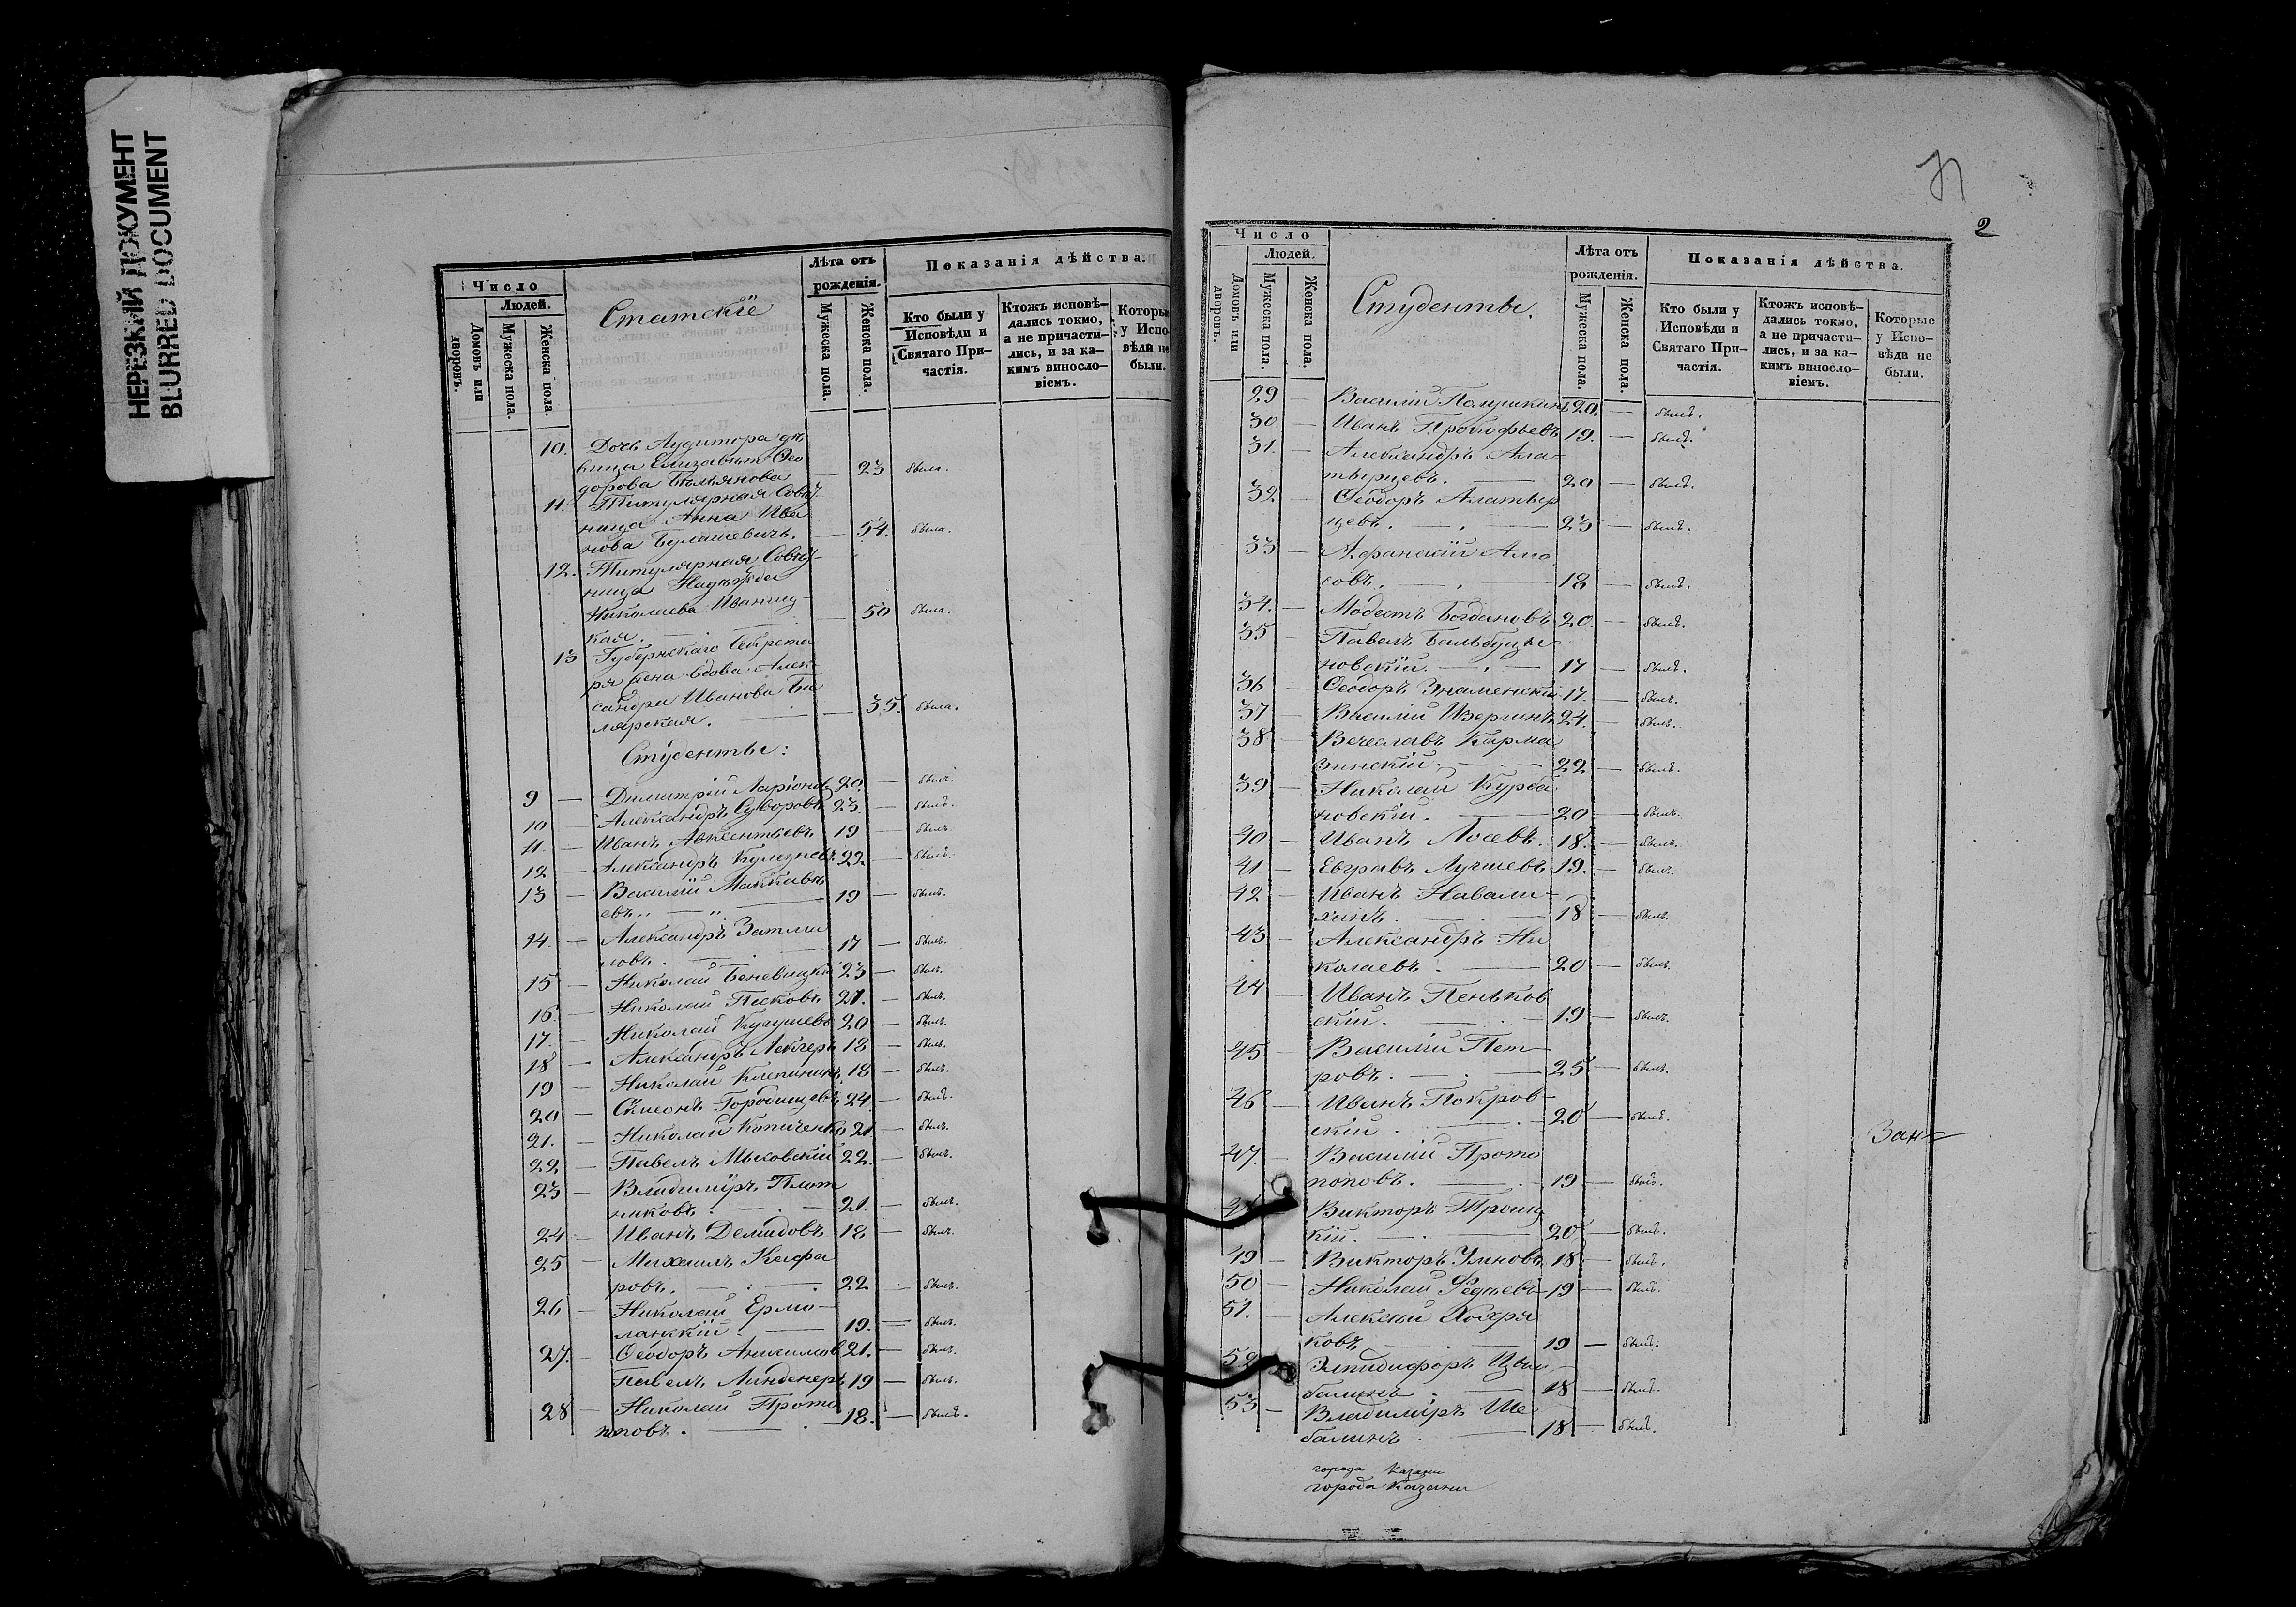 НЕРЕЗКИЙ ДОКУМЕНТ
BLURRED DOCUMENT
Число
Людей.
Домовъ или дворовъ.
Мужеска пола.
Женска пола.
Статскіе
Лѣта отъ рожденія.
Мужеска пола.
Женска пола.
Показанія дѣйства.
Кто были у Исповѣди и Святаго Причастія.
Ктожъ исповѣдались токмо, а не причастились, и за каким винословіемъ.
Которые у Исповѣди не были.
10. Дочь Аудитора дѣ
вица Елизавета Ѳео
дорова — 23 была.
11. Титулярная Совѣт-
ница Анна Ива
нова — 54. была.
12. Титулярная Совѣт-
ница Надежда
Николаева Иваниц-
кая. — 50 была.
13 Губернскаго Секрета
ря жена вдова Алек-
сандра Иванова Ба
лярская. — 35. была.
Студенты:
9 — Димитрій Ларіоновъ 20. — былъ.
10 — Александръ Суворовъ 23. — былъ.
11. — Иванъ Авксентьевъ 19 — былъ.
12 — Александръ 22. — былъ.
13 — Василій Маккаве
евъ. — 19 — былъ.
14. — Александръ
17 — былъ.
15 — Николай Беневицкій 23 — былъ.
16. — Николай Песковъ 21. — былъ.
17. — Николай Кугушевъ 20 — былъ.
18 — Александръ 18 — былъ.
19 — Николай Клепининъ 18 — былъ.
20 — Симеонъ Городищевъ 24. — былъ.
21. — Николай Копиченко 21. — былъ.
22 — Павелъ Мысовскій 22. — былъ.
23 — Владиміръ Плот
никовъ. — 21. — былъ.
24 — Иванъ Демидовъ 18 — былъ.
25 — Михаилъ
ровъ. — 22 — былъ.
26 — Николай Ермо-
19. — былъ.
27. — Ѳеодоръ Анисимов 21. — былъ.
Павелъ Линденеръ 19 — былъ.
28 — Николай Прото
поповъ. — 18. — былъ.
2
Число
Людей.
Домовъ или дворовъ.
Мужеска пола.
Женска пола.
Студенты.
Лѣта отъ рожденія.
Мужеска пола.
Женска пола
Показанія дѣйства.
Кто были у Исповѣди и Святаго Причастія.
Ктожъ исповѣдались токмо, а не причастились, и за каким винословіемъ.
Которые у Исповѣди не были.
29 — Василій 20. — былъ.
30. — Иванъ Прокофьевъ 19. — былъ.
31. — Александръ Ала-
тырцевъ. — 20 — былъ.
32. — Ѳеодоръ Алатыр
цевъ. — 23 — былъ.
33 — Амо
совъ. — 18 — былъ.
34. — Модестъ Богдановъ 20. — былъ.
35 — Павелъ
новскій. — 17 — былъ.
36 — Ѳеодоръ Знаменскій 17. — былъ.
37 — Василій Изергинъ 24. — былъ.
38 — Вечеславъ Карма
зинскій. — 22 — былъ.
39 — Николай Курба
новскій. — 20 — былъ.
40 — Иванъ Лосевъ. 18. — былъ.
41. — Евграфъ Лучшевъ 19. — былъ.
42 — Иванъ Навали-
хинъ. — 18 — былъ.
43 — Александръ Ни
колаевъ. — 20 — былъ.
44 — Иванъ Пеньков
скій. — 19 — былъ.
45 — Василій Пет-
ровъ. — 25 — былъ.
46 — Иванъ Покров-
скій. — 20 — былъ.
47. — Василій Прото
поповъ. — 19 — былъ.
Викторъ Троиц
кій. — 20 — былъ.
49 — Викторъ Умновъ 18 — былъ.
50 — Николай 19 — былъ.
51. — Алексѣй Хохря
ковъ — 19 — былъ.
52 — Элпидифоръ Цыи
балинъ — 18 — былъ.
53 — Владиміръ Ше
балинъ. — 18 — былъ.
города Казани
города Казани